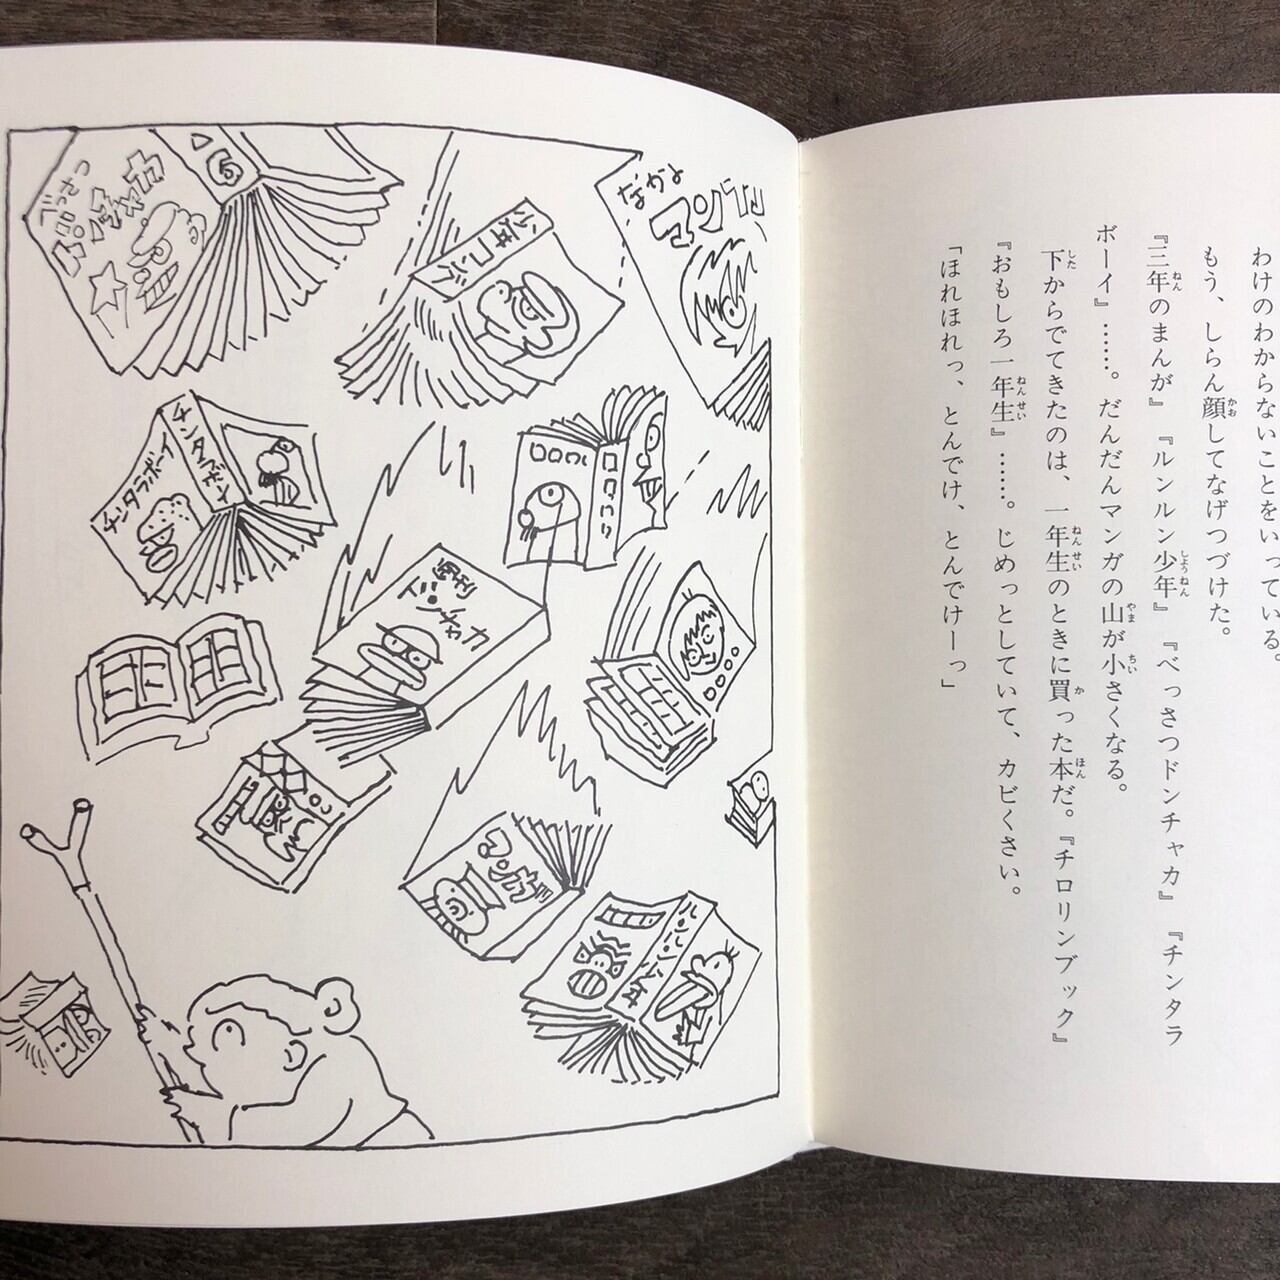 わけのわからないことをいっている。
もう、しらん顔してなげつづけた。
『三年のまんが』『ルンルン少年』『べっさつドンチャカ』『チンタラ
ボーイ』……。だんだんマンガの山が小さくなる。
下からでてきたのは、一年生のときに買った本だ。『チロリンブック』
『おもしろ一年生』……。じめっとしていて、カビくさい。
「ほれほれっ、とんでけ、とんでけーっ」
なかよ
マンガ
少年コング
チンタラボーイ
週刊
ドンチャカ
マンガ
ルンルン少年